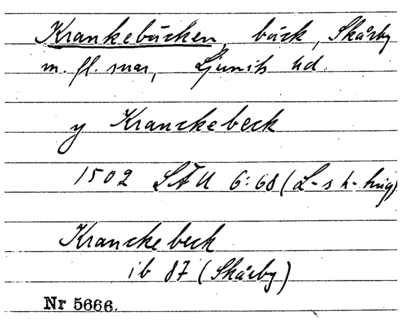 Krankebäcken, bäck, Skårby
m. fl. snar, Ljunits hd.
y Kranckebeck
1502 LÄU 6:68 (L-s h-ting)
Kranckebeck
ib 87 (Skårby)
Nr 5666.